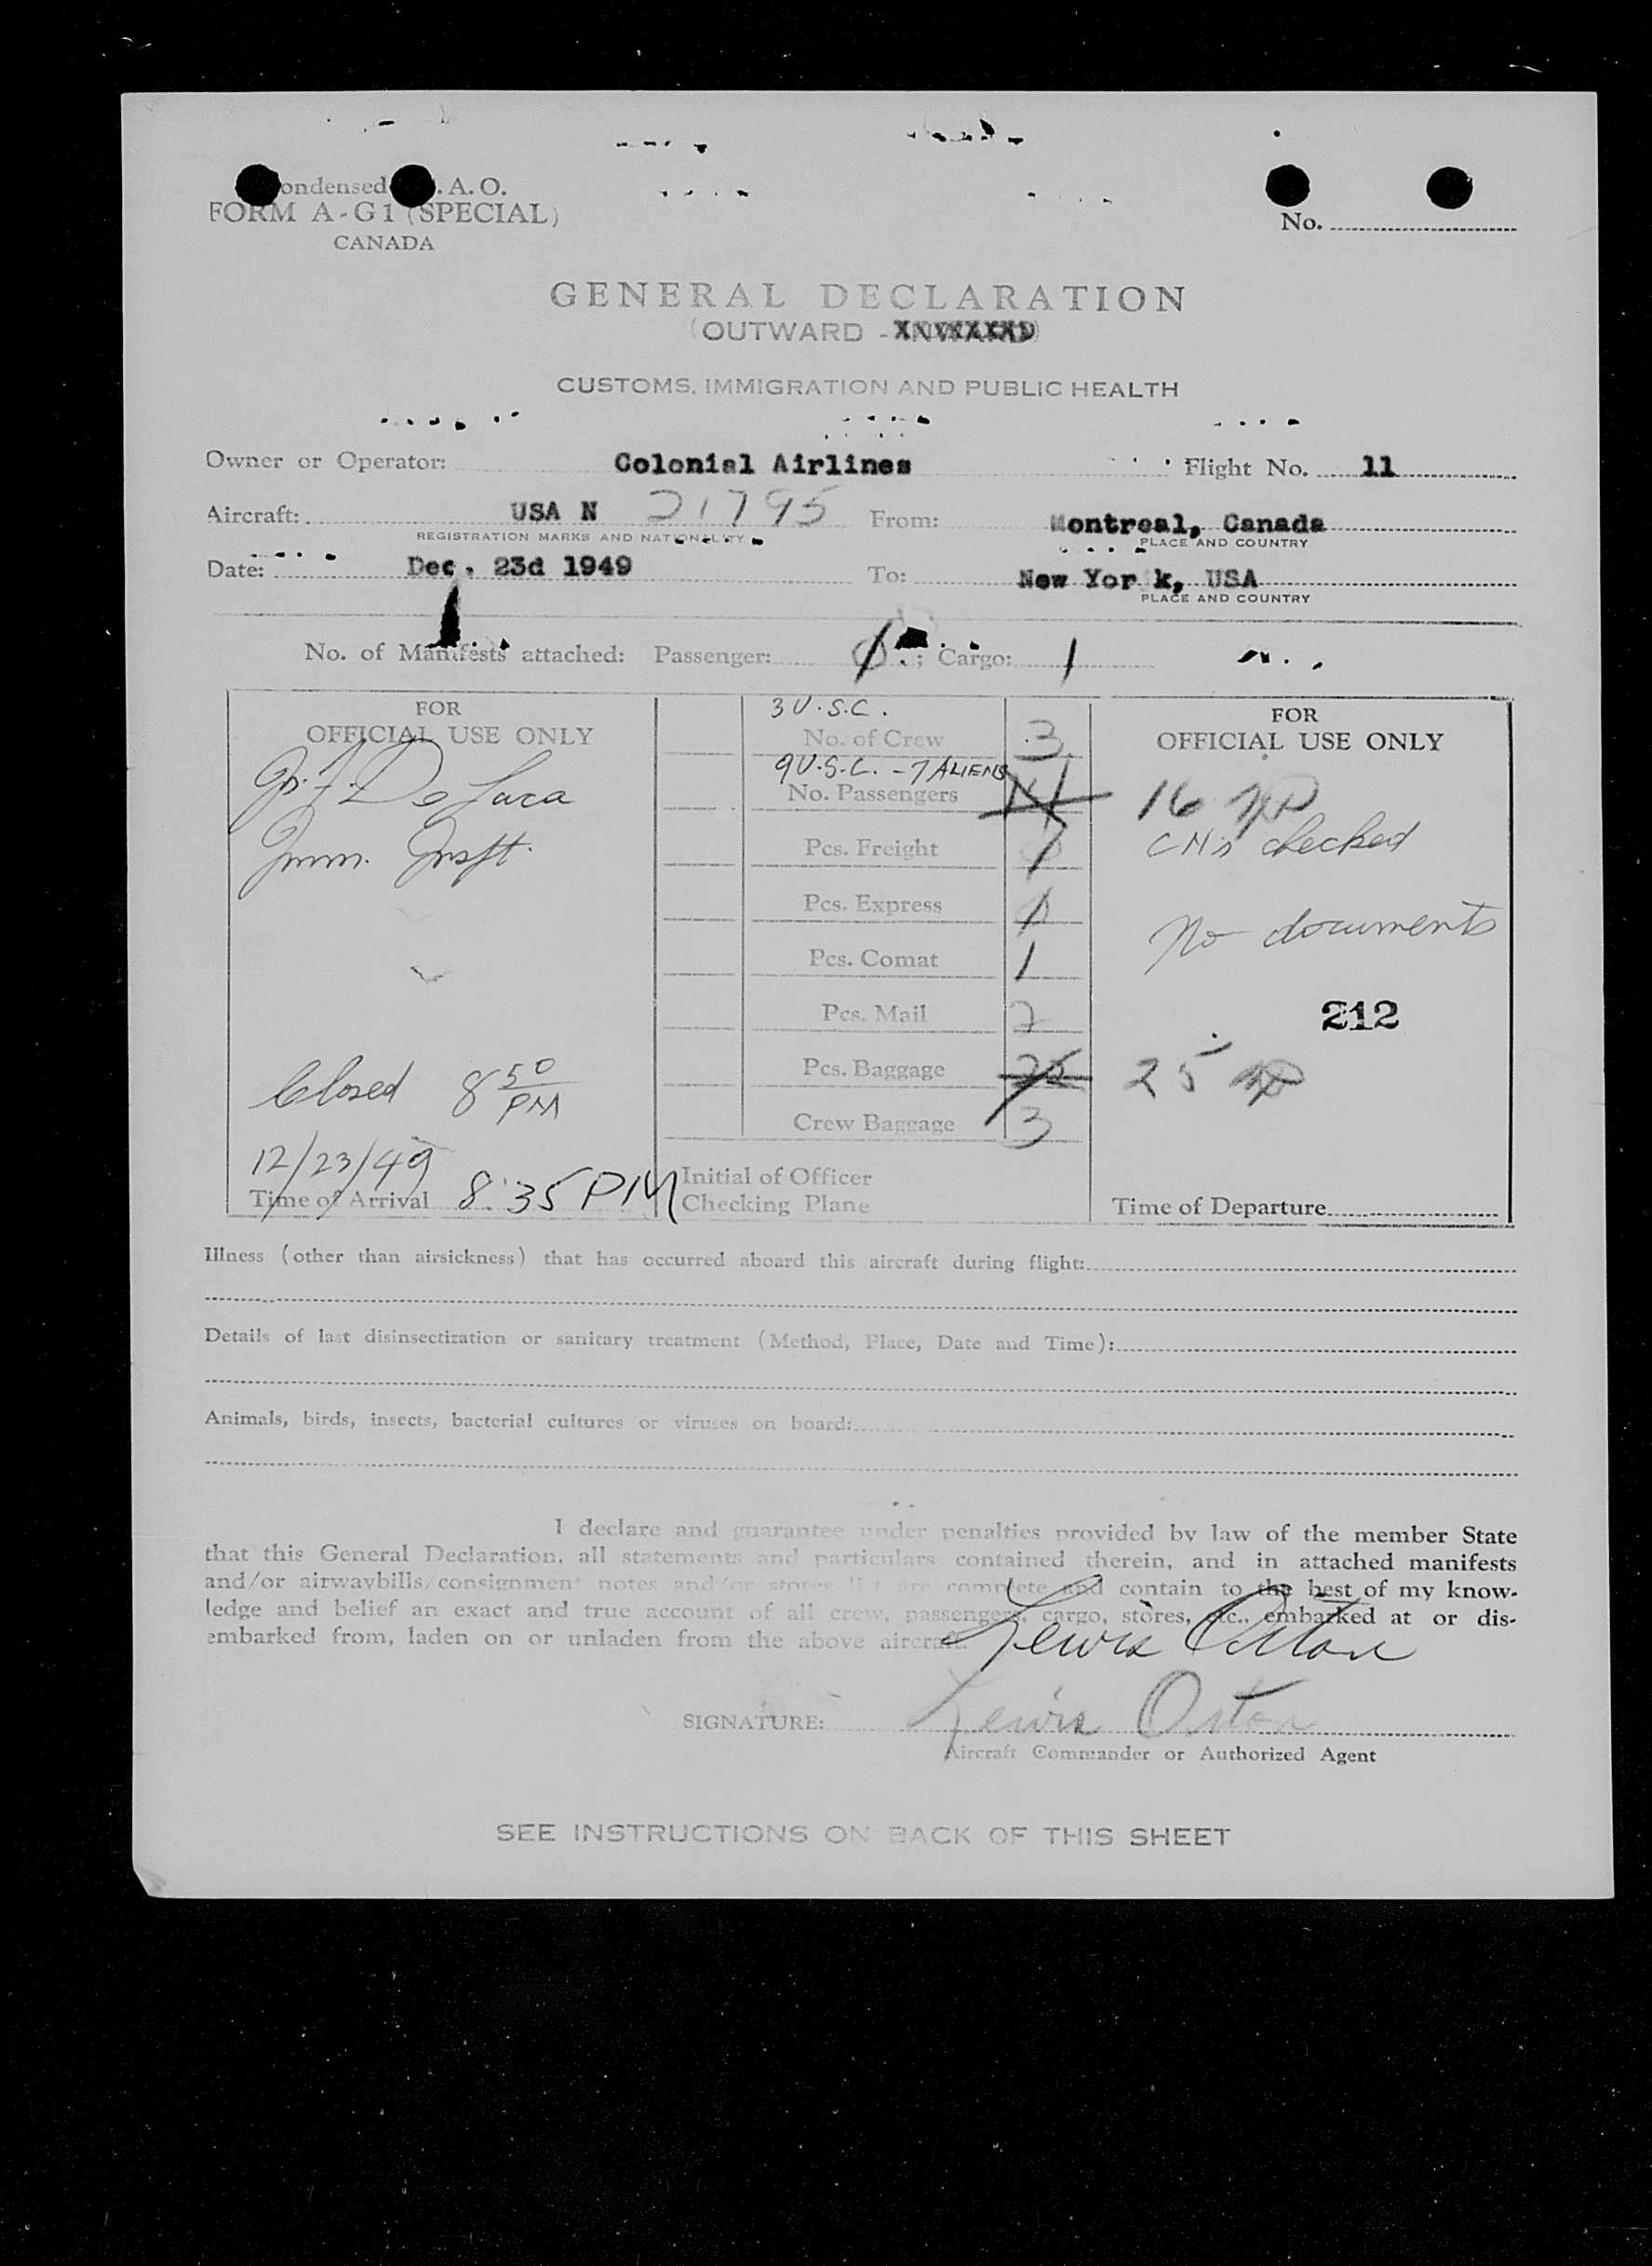 ondensed .A.O.
FORM A-G1 (SPECIAL)
CANADA
No.
GENERAL DECLARATION
(OUTWARD -
CUSTOMS, IMMIGRATION AND PUBLIC HEALTH
Owner or Operator: Colonial Airlines Flight No. 11
Aircraft: USA N 21795 From: Montreal, Canada
REGISTRATION MARKS AND NATIONALITY PLACE AND COUNTRY
Date: Dec. 23d 1949 To: New Yor k, USA
PLACE AND COUNTRY
No. of Manifests attached: Passenger: ; Cargo: 1
FOR
OFFICIAL USE ONLY
De Lara
Imm. Inspt.
Closed 8 50 PM
12/23/49
Time of Arrival 8:35 PM
3 U.S.C.
No. of Crew 3
9 U.S.C. - 7 ALIENS
No. Passengers
Pcs. Freight
Pcs. Express
Pcs. Comat 1
Pcs. Mail 2
Pcs. Baggage 25
Crew Baggage 3
Initial of Officer
Checking Plane
FOR
OFFICIAL USE ONLY
16
checked
No documents
212
25
Time of Departure
Illness (other than airsickness) that has occurred aboard this aircraft during flight:
Details of last disinsectization or sanitary treatment (Method, Place, Date and Time):
Animals, birds, insects, bacterial cultures or viruses on board:
I declare and guarantee under penalties provided by law of the member State
that this General Declaration, all statements and particulars contained therein, and in attached manifests
and/or airwaybills/consignment notes and/or stores list are complete and contain to the best of my know-
ledge and belief an exact and true account of all crew, passengers, cargo, stores, etc., embarked at or dis-
embarked from, laden on or unladen from the above aircraft.
Lewis Orton
SIGNATURE: Lewis Orton
Aircraft Commander or Authorized Agent
SEE INSTRUCTIONS ON BACK OF THIS SHEET